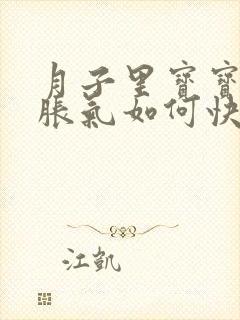 月子里寶寶
脹氣如何快
江凱